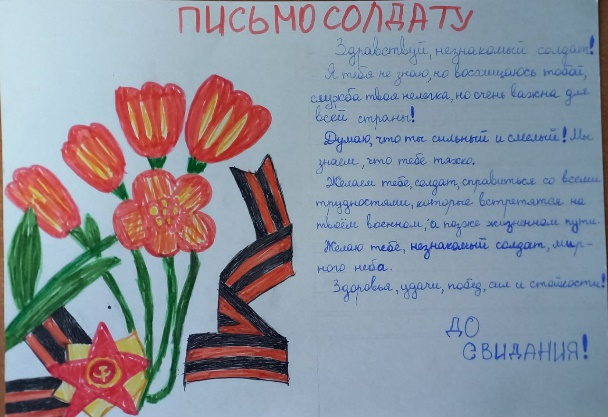 ПИСЬМО СОЛДАТУ
Здравствуй, незнакомый солдат!
Я тебя не знаю, но восхищаюсь тобой,
служба твоя нелегка, но очень важна для
всей страны!
Думаю, что ты сильный и смелый! Мы
знаем, что тебе тяжко.
Желаем тебе, солдат, справиться со всеми
трудностями, которые встретятся на
твоём военном, а позже жизненном пути.
Желаю тебе, незнакомый солдат, мир-
ного неба.
Здоровья, удачи, побед, сил и стойкости!
ДО
СВИДАНИЯ!